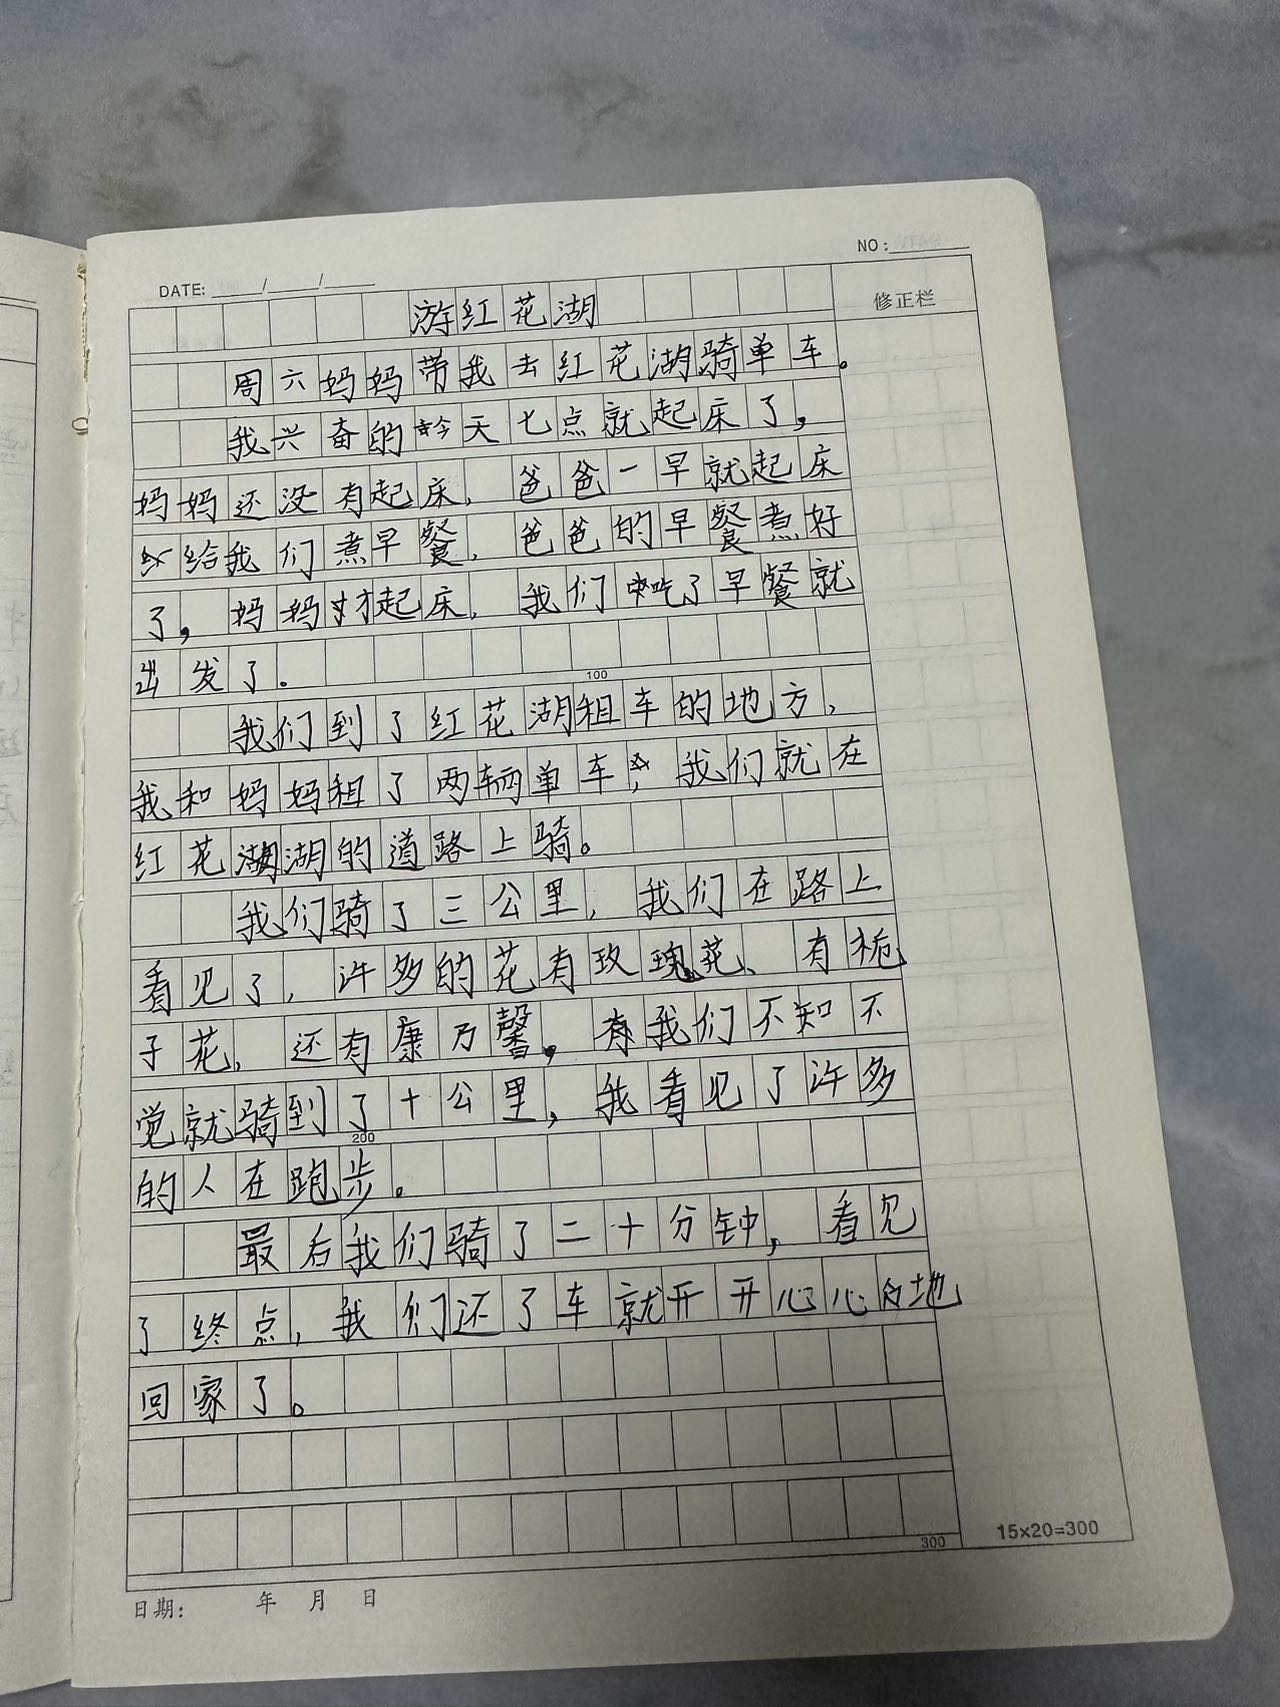 DATE: / /
NO:
修正栏
游红花湖
周六妈妈带我去红花湖骑单车。
我兴奋的今天七点就起床了，
妈妈还没有起床，爸爸一早就起床
给我们煮早餐，爸爸的早餐煮好
了，妈妈才起床，我们吃了早餐就
出发了。
100
我们到了红花湖租车的地方，
我和妈妈租了两辆单车，我们就在
红花湖的道路上骑。
我们骑了三公里，我们在路上
看见了，许多的花有玫瑰花、有栀
子花，还有康乃馨。我们不知不
觉就骑到了十公里，我看见了许多
200
的人在跑步。
最后我们骑了二十分钟，看见
了终点，我们还了车就开开心心的地
回家了。
300
15×20=300
日期： 年 月 日